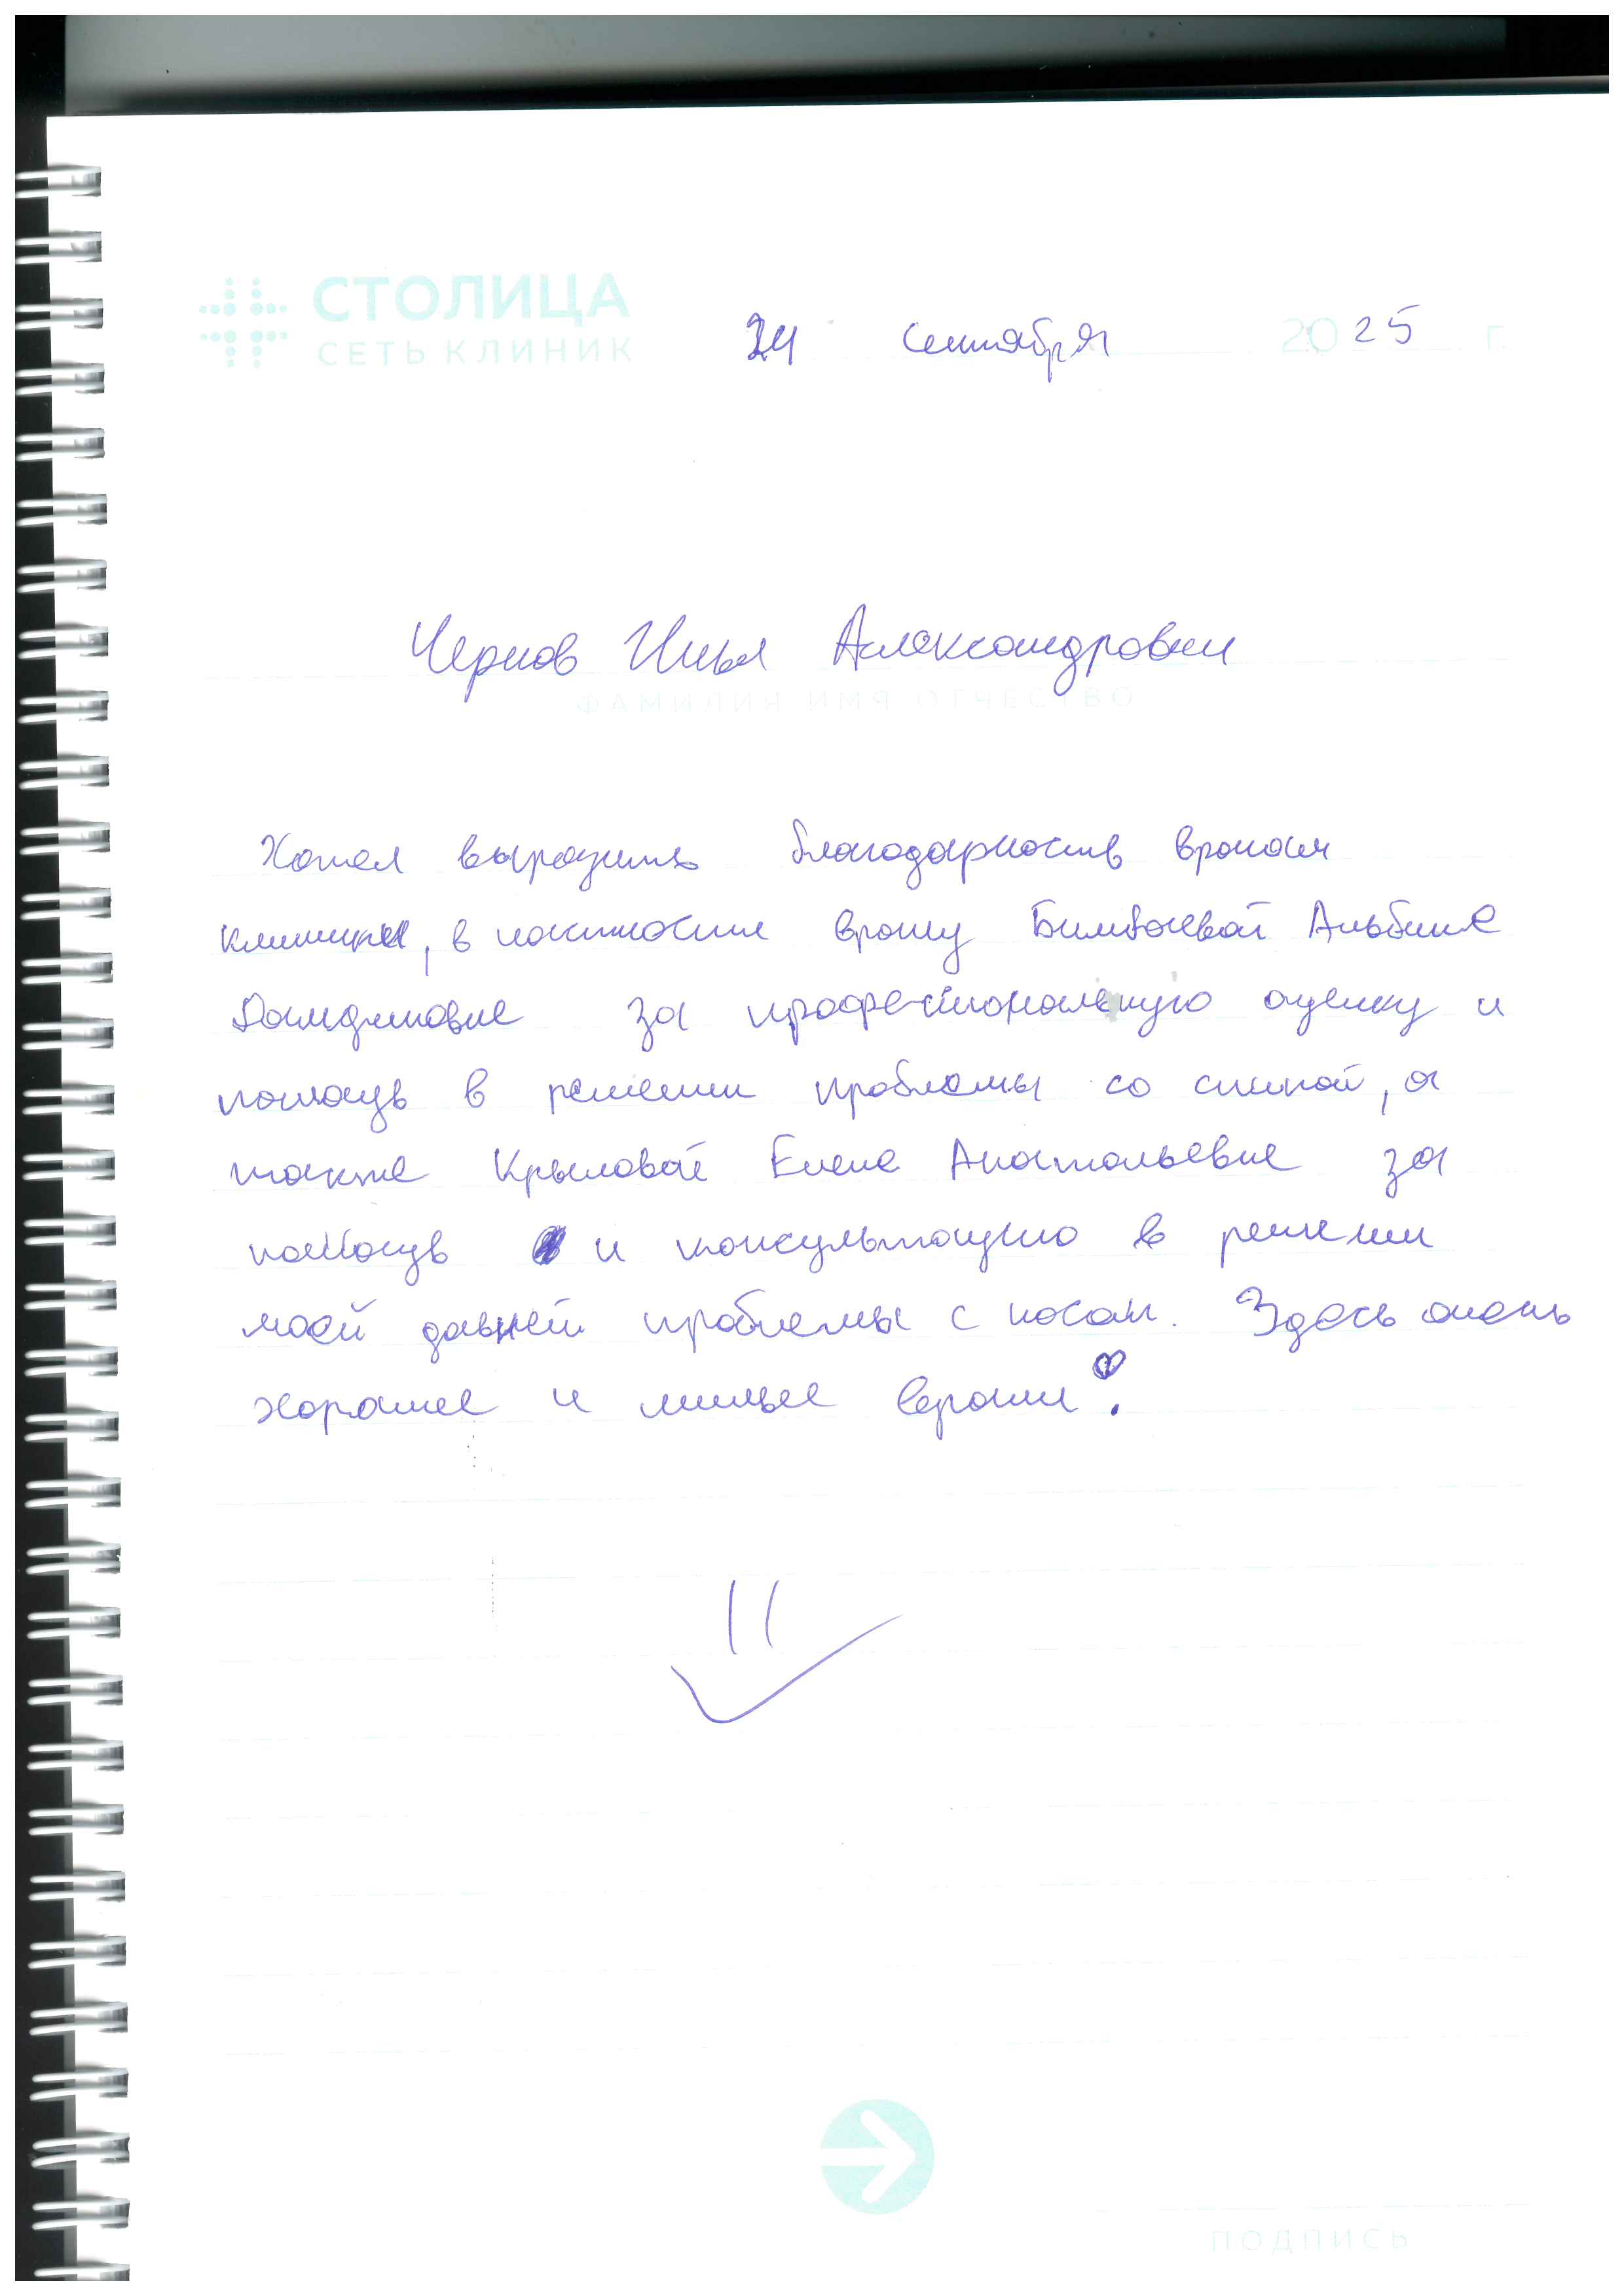 СТОЛИЦА
СЕТЬ КЛИНИК
24 сентября 2025 г.
Чернов Илья Александрович
ФАМИЛИЯ ИМЯ ОТЧЕСТВО
Хотел выразить благодарность врачам
клиники, в частности врачу Бимбаевой Альбине
за профессиональную оценку и
помощь в решении проблемы со спиной, а
также Крыловой Елене Анатольевне за
помощь и консультацию в решении
моей давней проблемы с носом. Здесь очень
хорошие и милые врачи
ПОДПИСЬ